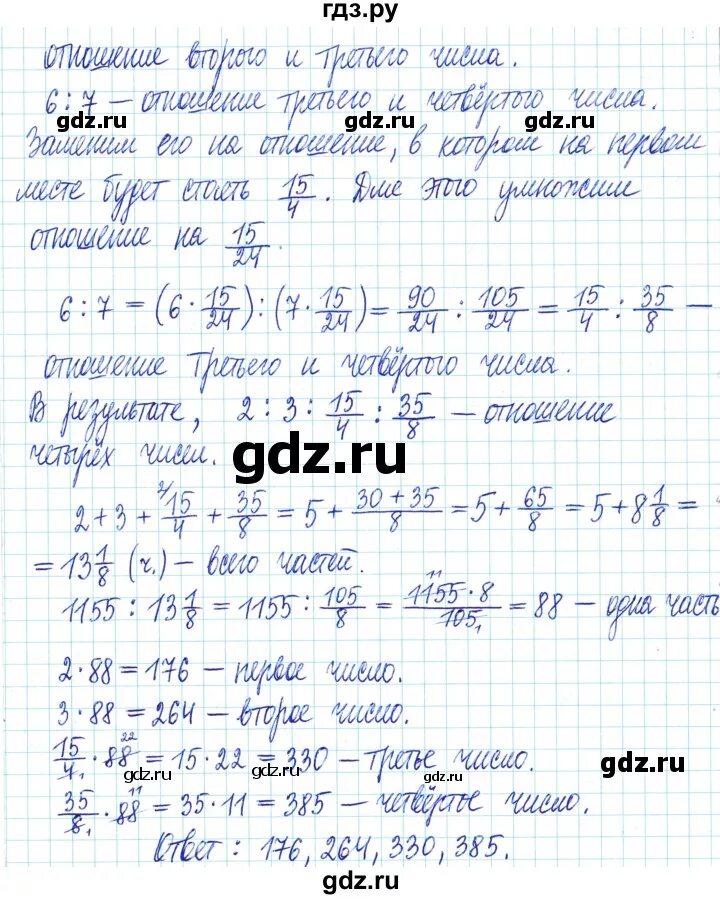 гдз.ру
отношение второго и третьего числа.
6 : 7 — отношение третьего и четвёртого числа.
gdz.ru gdz.ru gdz.ru
Заменим его на отношение, в котором на первом
месте будет стоять 15/4. Для этого умножим
отношение на 15/24.
6 : 7 = (6 · 15/24) : (7 · 15/24) = 90/24 : 105/24 = 15/4 : 35/8 —
отношение третьего и четвёртого числа.
В результате, 2 : 3 : 15/4 : 35/8 — отношение
четырёх чисел.
gdz.ru
2 + 3 + 2/15/4 + 35/8 = 5 + 30 + 35/8 = 5 + 65/8 = 5 + 8 1/8 =
= 13 1/8 (ч.) — всего частей.
1155 : 13 1/8 = 1155 : 105/8 = 11 1155 · 8/105 1 = 88 — одна часть
2 · 88 = 176 — первое число.
3 · 88 = 264 — второе число.
15/4 1 · 88 22 = 15 · 22 = 330 — третье число.
gdz.ru gdz.ru gdz.ru
35/8 1 · 88 11 = 35 · 11 = 385 — четвёртые число.
Ответ : 176, 264, 330, 385.
gdz.ru